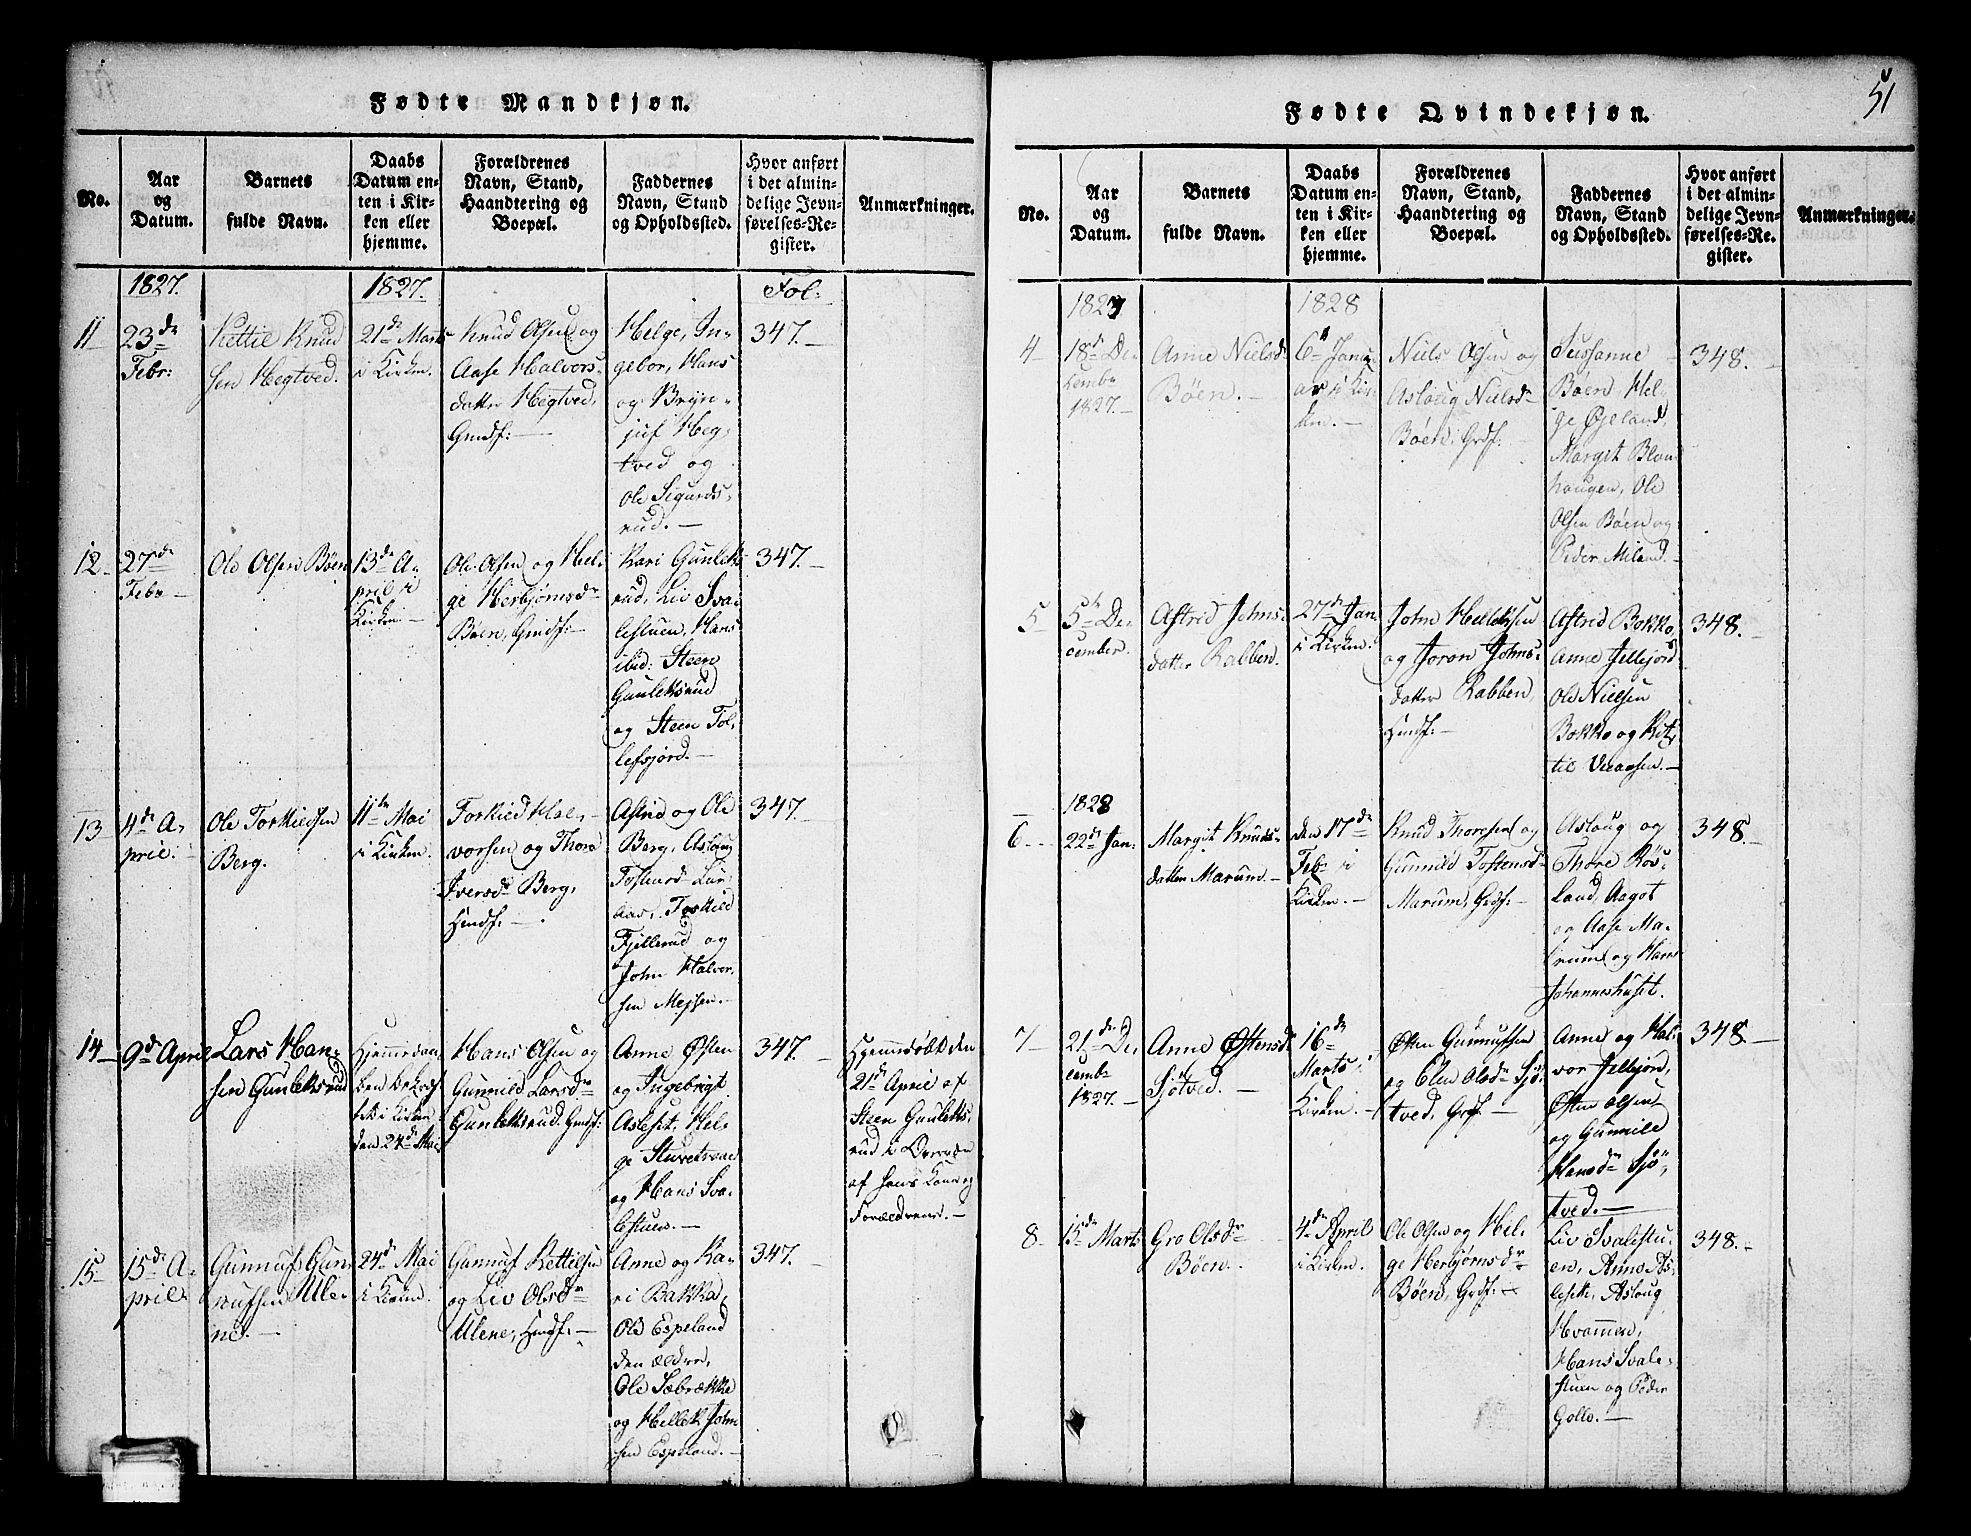 Fødte Mandkjøn.
No.
Aar
og
Datum.
Barnets
fulde Navn.
Daabs
Datum en-
ten i Kir-
ken eller
hjemme.
Forældrenes
Navn, Stand,
Haandtering og
Boepæl.
Faddernes
Navn, Stand
og Opholdssted.
Hvor anført
i det almin-
delige Jevn-
førelses-Re-
gister.
Anmærkninger.
1827.
1827.
Fol:
11
23de
Febr:
Kettil Knud
sen Hegtved.
21de Marts
i Kirken.
Knud Olsen og
Aase Halvors-
datter Hegtved,
Gmdf:
Helge, In-
gebor, Hans
og Bryn-
juf Heg-
tved og
Ole Sigurds-
rud.
347.
12
27de
Febr
Ole Olsen Bøen
13de A-
pril i
Kirken.
Ole Olsen og Hel-
ge Herbjørnsdr
Bøen, Gmdf:
Kari Gunleks
rud, Liv Sva-
lestuen, Hans
ibid: Steen
Gunleksrud
og Steen Tol-
lefsjord.
347.
13
4de A-
pril.
Ole Torkildsen
Berg.
11te Mai
i Kirken.
Torkild Hal-
vorsen og Thora
Iversdr Berg,
Hmdf:
Astrid og Ole
Berg, Aslaug
Tostensd Lur-
aas, Torkild
Fjellerud og
John Halvor-
sen Mejsen.
347.
14
9de April
Lars Han-
sen Gunleksrud
Hjemmedaa-
ben bekræf-
tet i Kirken
den 24de Mai
Hans Olsen og
Gunnild Larsdr
Gunleksrud, Gmdf:
Anne Østen
og Ingebrigt
Aslesit, Hel-
ge Sturetveed
og Hans Sva-
lestuen.
347.
Hjemmedøbt den
21de April af
Steen Guleks-
rud i Overvær
af hans Kone og
Forældrene.
15
15de A-
pril
Gunnuf Gun-
nufsen Ule-
ne.
24de Mai
i Kirken.
Gunnuf Kettilsen
og Liv Olsdr
Ulene, Hmdf:
Anne og Ka-
ri Bakka,
Ole Espeland
den ældre,
Ole Sæbrække
og Hellek John
sen Espeland.
347.
51
Fødte Qvindekjøn.
No.
Aar
og
Datum.
Barnets
fulde Navn.
Daabs
Datum en-
ten i Kir-
ken eller
hjemme.
Forældrenes
Navn, Stand,
Haandtering og
Boepæl.
Faddernes
Navn, Stand
og Opholdssted.
Hvor anført
i det almin-
delige Jevn-
førelses-Re-
gister.
Anmærkninger.
1827
1828
4
18de De-
cembr
1827.
Anne Nielsdr
Bøen.
6te Janu-
ar i Kir-
ken.
Niels Olsen og
Aslaug Nielsdr
Bøen, Grdf:
Sussanne
Bøen, Hel-
ge Øjeland,
Margit Blom
haugen, Ole
Olsen Bøen og
Peder Miland.
348.
5
5te De-
cember.
Astrid Johns-
datter Rabben.
27de Jan
i Kirken.
John Helleksen
og Joron Johns-
datter Rabben,
Hmdf:
Astrid Bokko,
Anne Jellejord
Ole Nielsen
Bokko og Ket-
til Veaasen.
348.
1828
6
22de Jan:
Margit Knuds-
datter Marum.
den 17de
Febr i
Kirken.
Knud Thoresen og
Gunnild Tostensdr
Marum, Grdf:
Aslaug og
Thore Røs-
land, Aagot
og Aase Ma-
rum og Hans
Johanneshuset.
348.
7
21de De-
cembr
1827.
Anne Østensdr
Sjøtved.
16de
Marts i
Kirken.
Østen Gunnufsen
og Elen Olsdr Sjø-
tved, Grdf:
Anne og Hal-
vor Jellejord,
Østen Olsen
og Gunnild
Hansdr Sjø-
tved.
348.
8
15de Marts
Gro Olsdr
Bøen.
4de April
i Kirken.
Ole Olsen og Hel-
ge Herbjørnsdr
Bøen, Grdf:
Liv Svalestu-
en, Anne As-
lesit, Aslaug
Hvammen,
Hans Svale-
stuen og Peder
Gollo.
348.